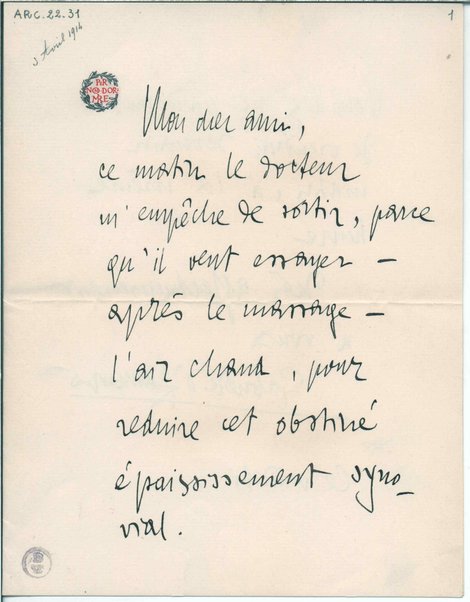 ARC.22.31
1
3 Avril 1914
PER
NON DOR
MIRE
Mon cher ami,
ce matin le docteur
m'empêche de sortir, parce
qu'il veut essayer –
après le massage –
l'air chaud, pour
reduire cet obstiné
épaississement syno-
vial.